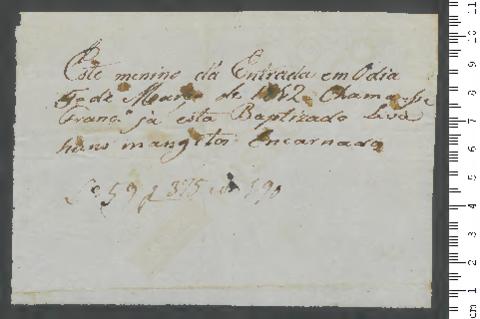 Este menino dá Entrada em O dia
de Março de 1852 Chama-se
Franc.º já está Baptizado Leva
huns manguitos encarnado
Lº 59 f 375 nº 590
11
10
9
8
7
6
5
4
3
2
cm 1